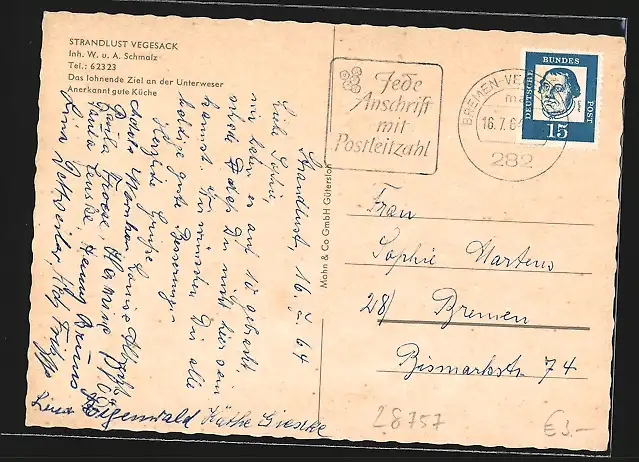 STRANDLUST VEGESACK
Inh. W. u. A. Schmalz
Tel.: 62323
Das lohnende Ziel an der Unterweser
Anerkannt gute Küche
Strandlust, 16.7.64
Liebe Sophie,
wir haben es auf 10 gebracht,
schade, daß Du nicht hier sein
kannst. Wir wünschen Dir alle
baldige gute Besserung.
Herzliche Grüße
Adele Louise
Paula Hermine
Paula Henny Bruns
Lina
Lina Käthe
Mohn & Co GmbH Gütersloh
Jede
Anschrift
mit
Postleitzahl
BREMEN-VE
16.7.6
282
DEUTSCHE BUNDES POST
15
Frau
Sophie Martens
28) Bremen
Bismarckstr. 74
28757
€3.-